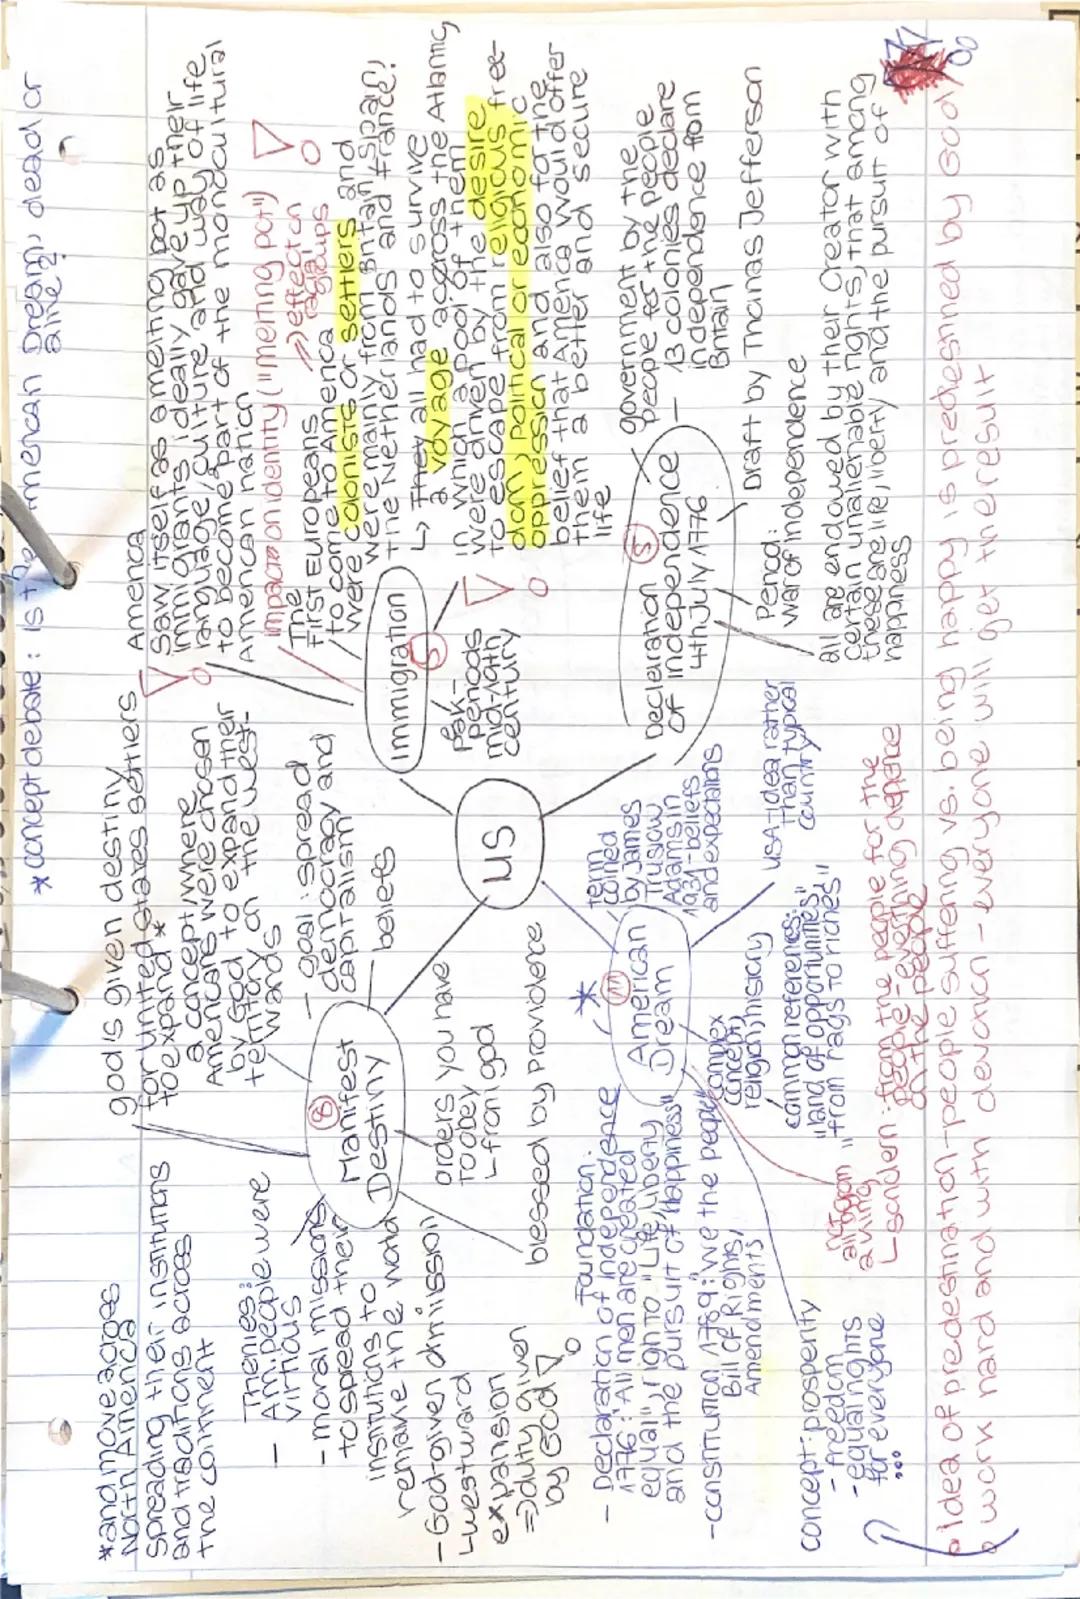 * concept debate: is the American Dream dead or
alive?
god is given destiny
for united states settlers
to expand *
a concept where
Americans were chosen
by God to expand their
territory on the west-
wards
- goal: spread
democracy and
capitalism
- beliefs
*and move across
North America
spreading their institutions
and traditions across
the continent
Manifest
Destiny
- Theories:
Am. people were
virtious
- moral missions
to spread their
institutions to
remake the world
- God-given dmission
westward
expansion
=> duity given
by God
orders you have
to obey
from god
blessed by providence
US
America
Saw itself as a melting pot as
immigrants ideally gave up their
language, culture and way of life
to become part of the monocultural
American nation
impact on identity ("melting pot")
=> effect on
groups
The
First Europeans
to come to America
were colonists or settlers and
were mainly from Britain, Spain,
the Netherlands and France!
↳ They all had to survive
a voyage accross the Atlantic
in which a pool of them
were driven by the desire
to escape from religious free-
dom, political or economic
oppression and also for the
belief that America would offer
them a better and secure
life
Immigration
5
Peak-
periods
mid-19th
century
Decleration
of independence
4th July 1776
5
government by the
people for the people
- 13 colonies declare
independence from
Britain
Draft by Thomas Jefferson
Period:
War of Independence
all are endowed by their Creator with
certain unalienable rights, that among
these are life, liberty and the pursuit of
happiness
*
American
Dream
term
coined
by James
Truslow
Adams in
1931-beliefs
and expectations
USA: idea rather
than typical
country
complex
concept
religion, history
common references:
"land of opportunities"
"from rags to riches"
Foundation:
- Declaration of independence
1776: "All men are created
equal", right to "Life, Liberty
and the pursuit of Happiness"
- constitution 1789: "we the people"
Bill of Rights,
Amendments
concept: prosperity
- freedom
- equal rights
for everyone
...
from the people for the
people - everything depends
on the people
• Idea of predestination - people suffering vs. being happy is predestined by God
• work hard and with devotion - everyone will get the result